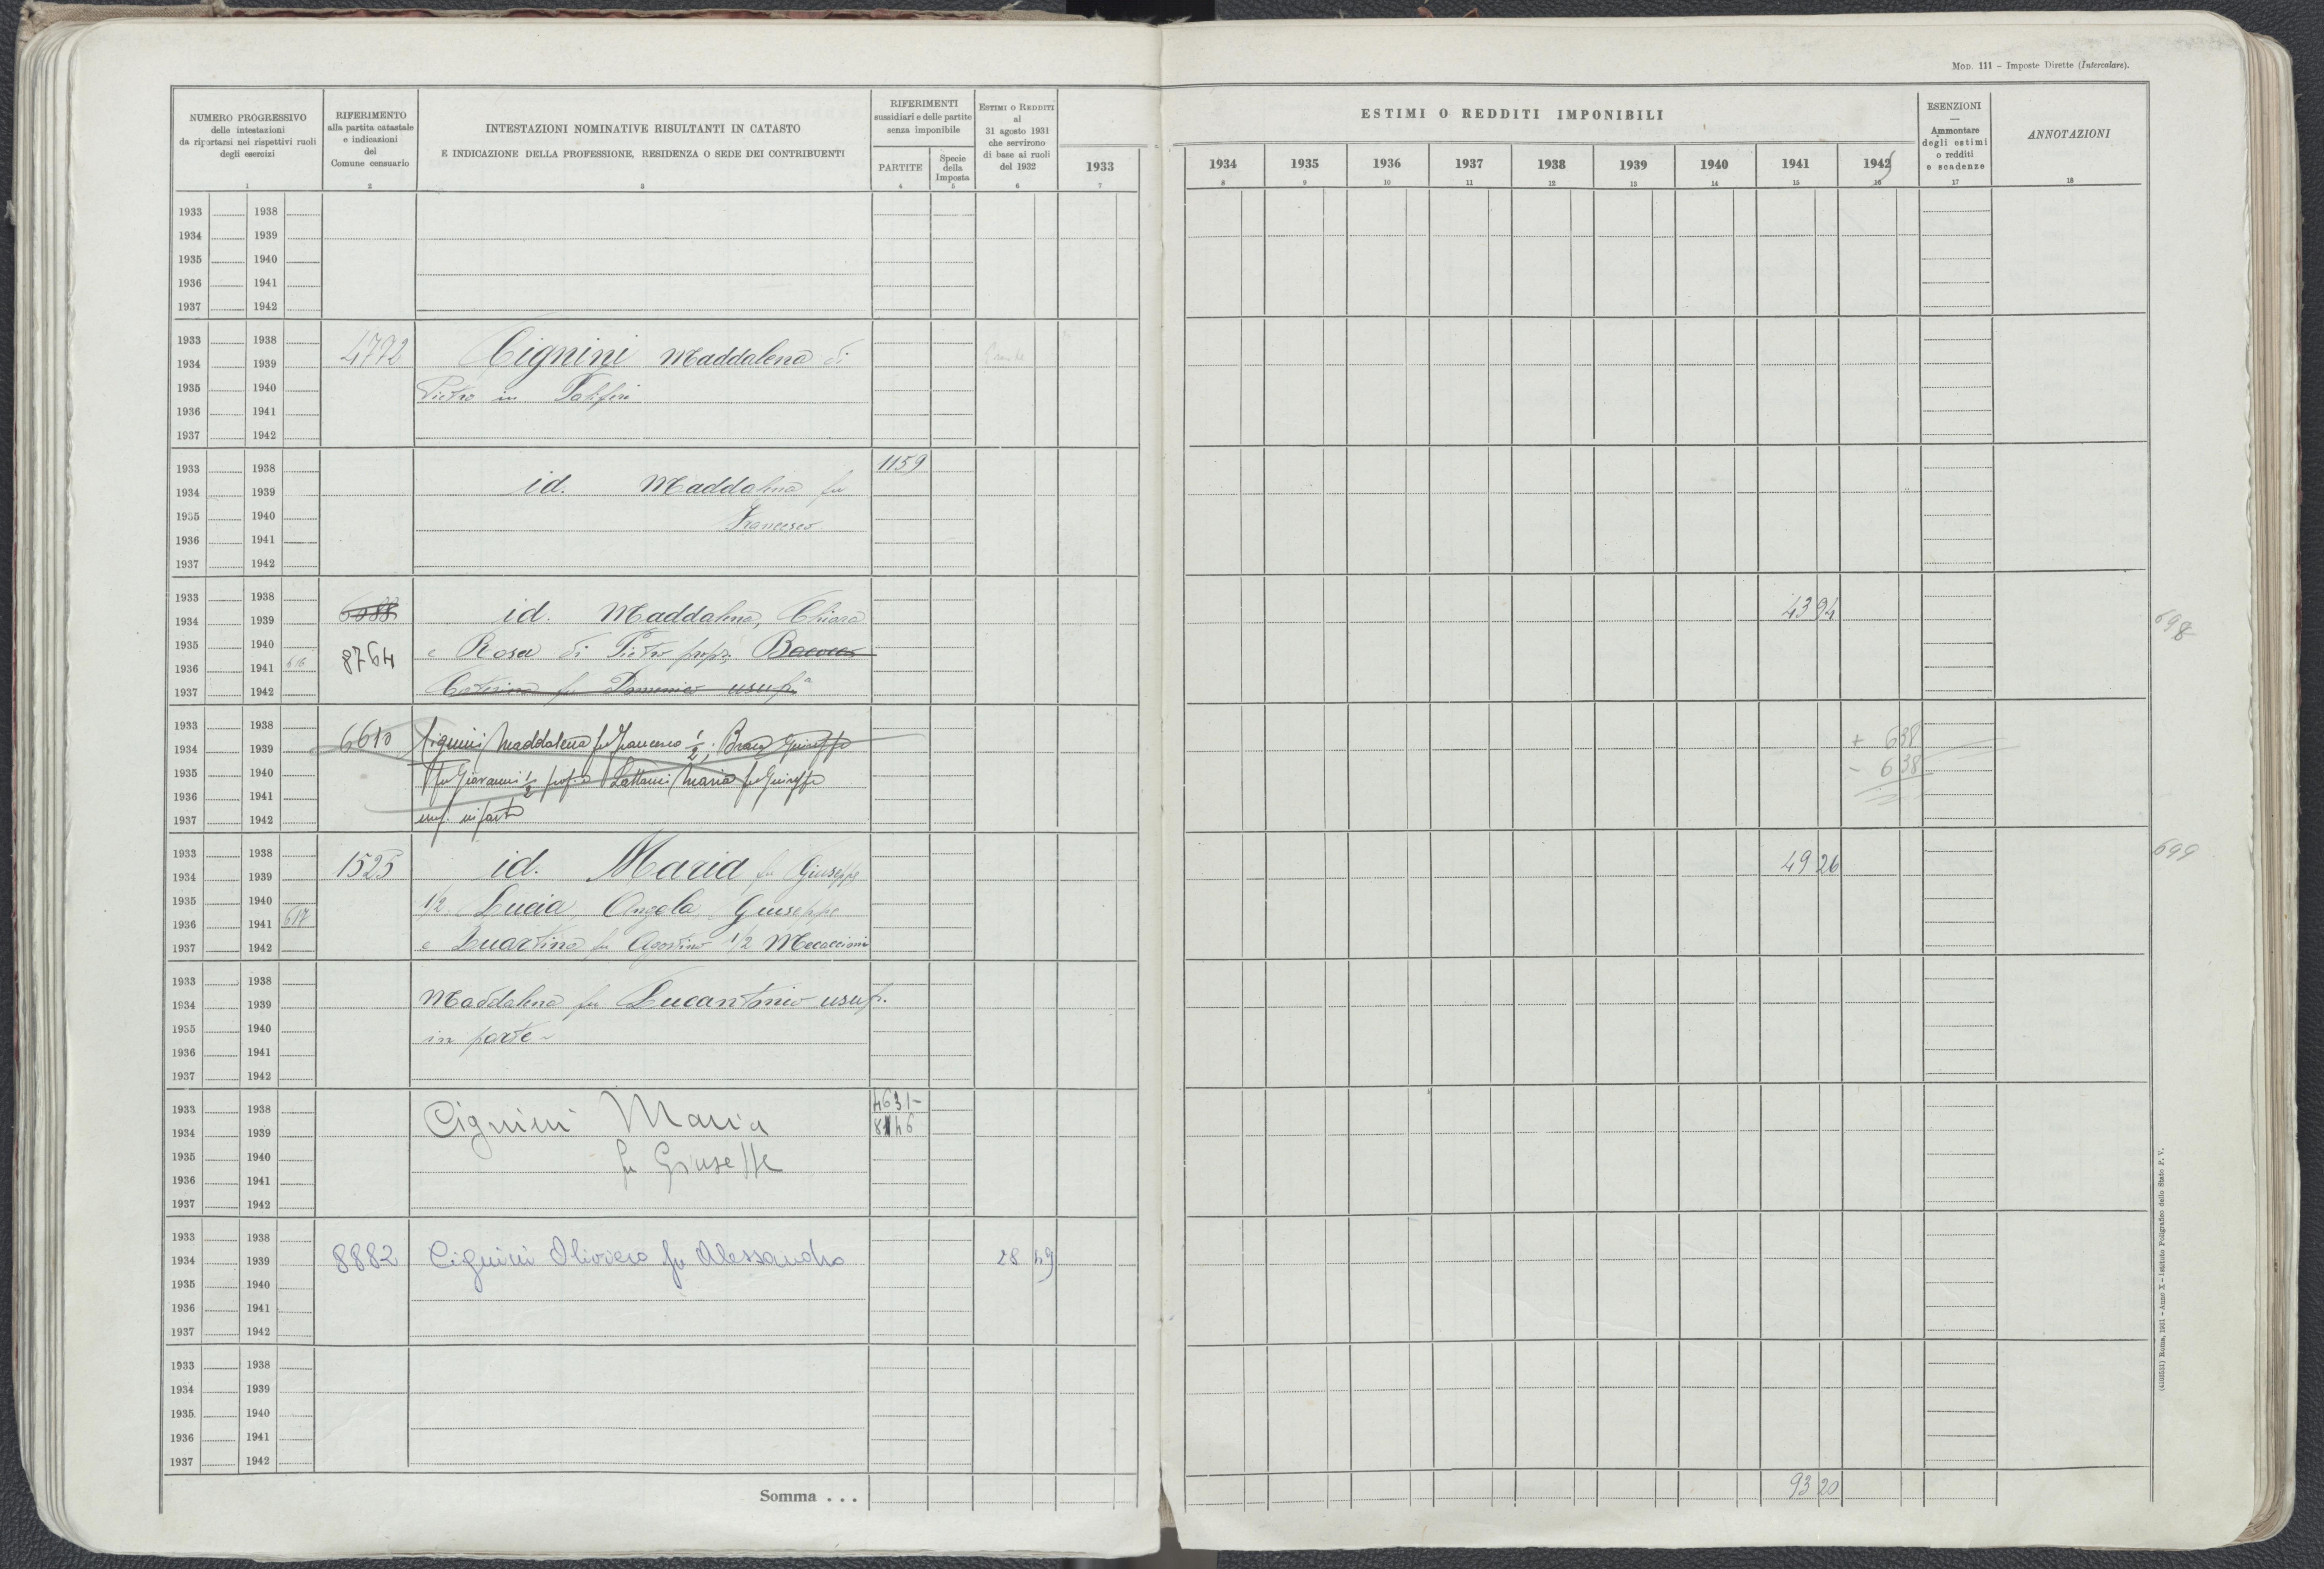 Mod. 111 – Imposte Dirette (Intercalare).
NUMERO PROGRESSIVO
delle intestazioni
da riportarsi nei rispettivi ruoli
degli esercizi
1
RIFERIMENTO
alla partita catastale
e indicazioni
del
Comune censuario
2
INTESTAZIONI NOMINATIVE RISULTANTI IN CATASTO
E INDICAZIONE DELLA PROFESSIONE, RESIDENZA O SEDE DEI CONTRIBUENTI
3
RIFERIMENTI
sussidiari e delle partite
senza imponibile
PARTITE
4
Specie
della
Imposta
5
Estimi o Redditi
al
31 agosto 1931
che servirono
di base ai ruoli
del 1932
6
1933
7
ESTIMI O REDDITI IMPONIBILI
1934 1935 1936 1937 1938 1939 1940 1941 1942
8 9 10 11 12 13 14 15 16
ESENZIONI
—
Ammontare
degli estimi
o redditi
e scadenze
17
ANNOTAZIONI
18
1933 1938
1934 1939
1935 1940
1936 1941
1937 1942
1933 1938
1934 1939 4792 Cignini Maddalena di
1935 1940 Pietro in
1936 1941
1937 1942
1933 1938 1159
1934 1939 id. Maddalena fu
1935 1940 Francesco
1936 1941
1937 1942
1933 1938
1934 1939 6088 id. Maddalena, Chiara 43 94 698
1935 1940 e Rosa di Pietro propr.
1936 1941 616 8764
1937 1942 Caterina fu Domenico usuf.
1933 1938
1934 1939 6610 Cignini Maddalena fu Francesco 1/2, Giuseppe + 638
1935 1940 fu Giovanni 1/2 prop. e Lattanzi Maria fu Giuseppe - 638
1936 1941
1937 1942 usuf. in parte
1933 1938 1525 id. Maria fu Giuseppe 49 26 699
1934 1939
1935 1940 1/2 Lucia, Angela, Giuseppe
1936 1941 617
1937 1942 e Quartina fu Agostino 1/2 Mecoccioni
1933 1938
1934 1939 Maddalena fu Lucantonio usuf.
1935 1940 in parte
1936 1941
1937 1942
1933 1938 Cignini Maria 4631-
1934 1939 8146
1935 1940 fu Giuseppe
1936 1941
1937 1942
1933 1938
1934 1939 8882 Cignini Oliviero fu Alessandro 28 49
1935 1940
1936 1941
1937 1942
1933 1938
1934 1939
1935 1940
1936 1941
1937 1942
Somma . . . 93 20
(4103551) Roma, 1931 – Anno X – Istituto Poligrafico dello Stato P. V.